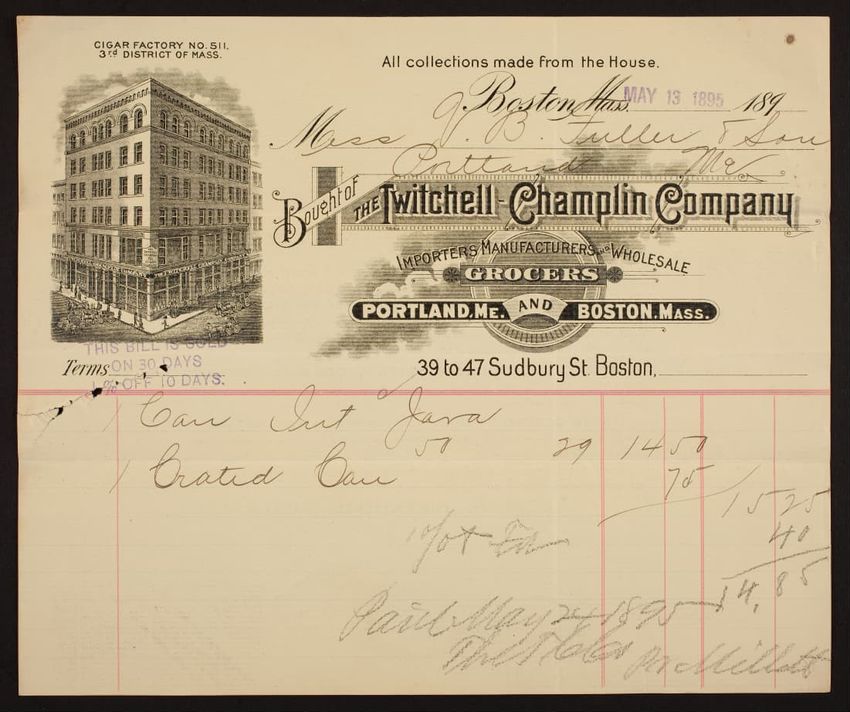 CIGAR FACTORY NO. 511.
3rd DISTRICT OF MASS.
All collections made from the House.
Boston, Mass. MAY 13 1895 189
Mess J. B. Fuller & Son
Portland Me
Bought of THE Twitchell-Champlin Company
IMPORTERS, MANUFACTURERS AND WHOLESALE
GROCERS
PORTLAND, ME. AND BOSTON, MASS.
THIS BILL IS SOLD
Terms ON 30 DAYS
1% OFF 10 DAYS.
39 to 47 Sudbury St. Boston,
1 Can Java
50 29 14 50
1 Crated Can 75
15 25
40
14.85
Paid May 24 1895
The T. C. Co
Per Millett